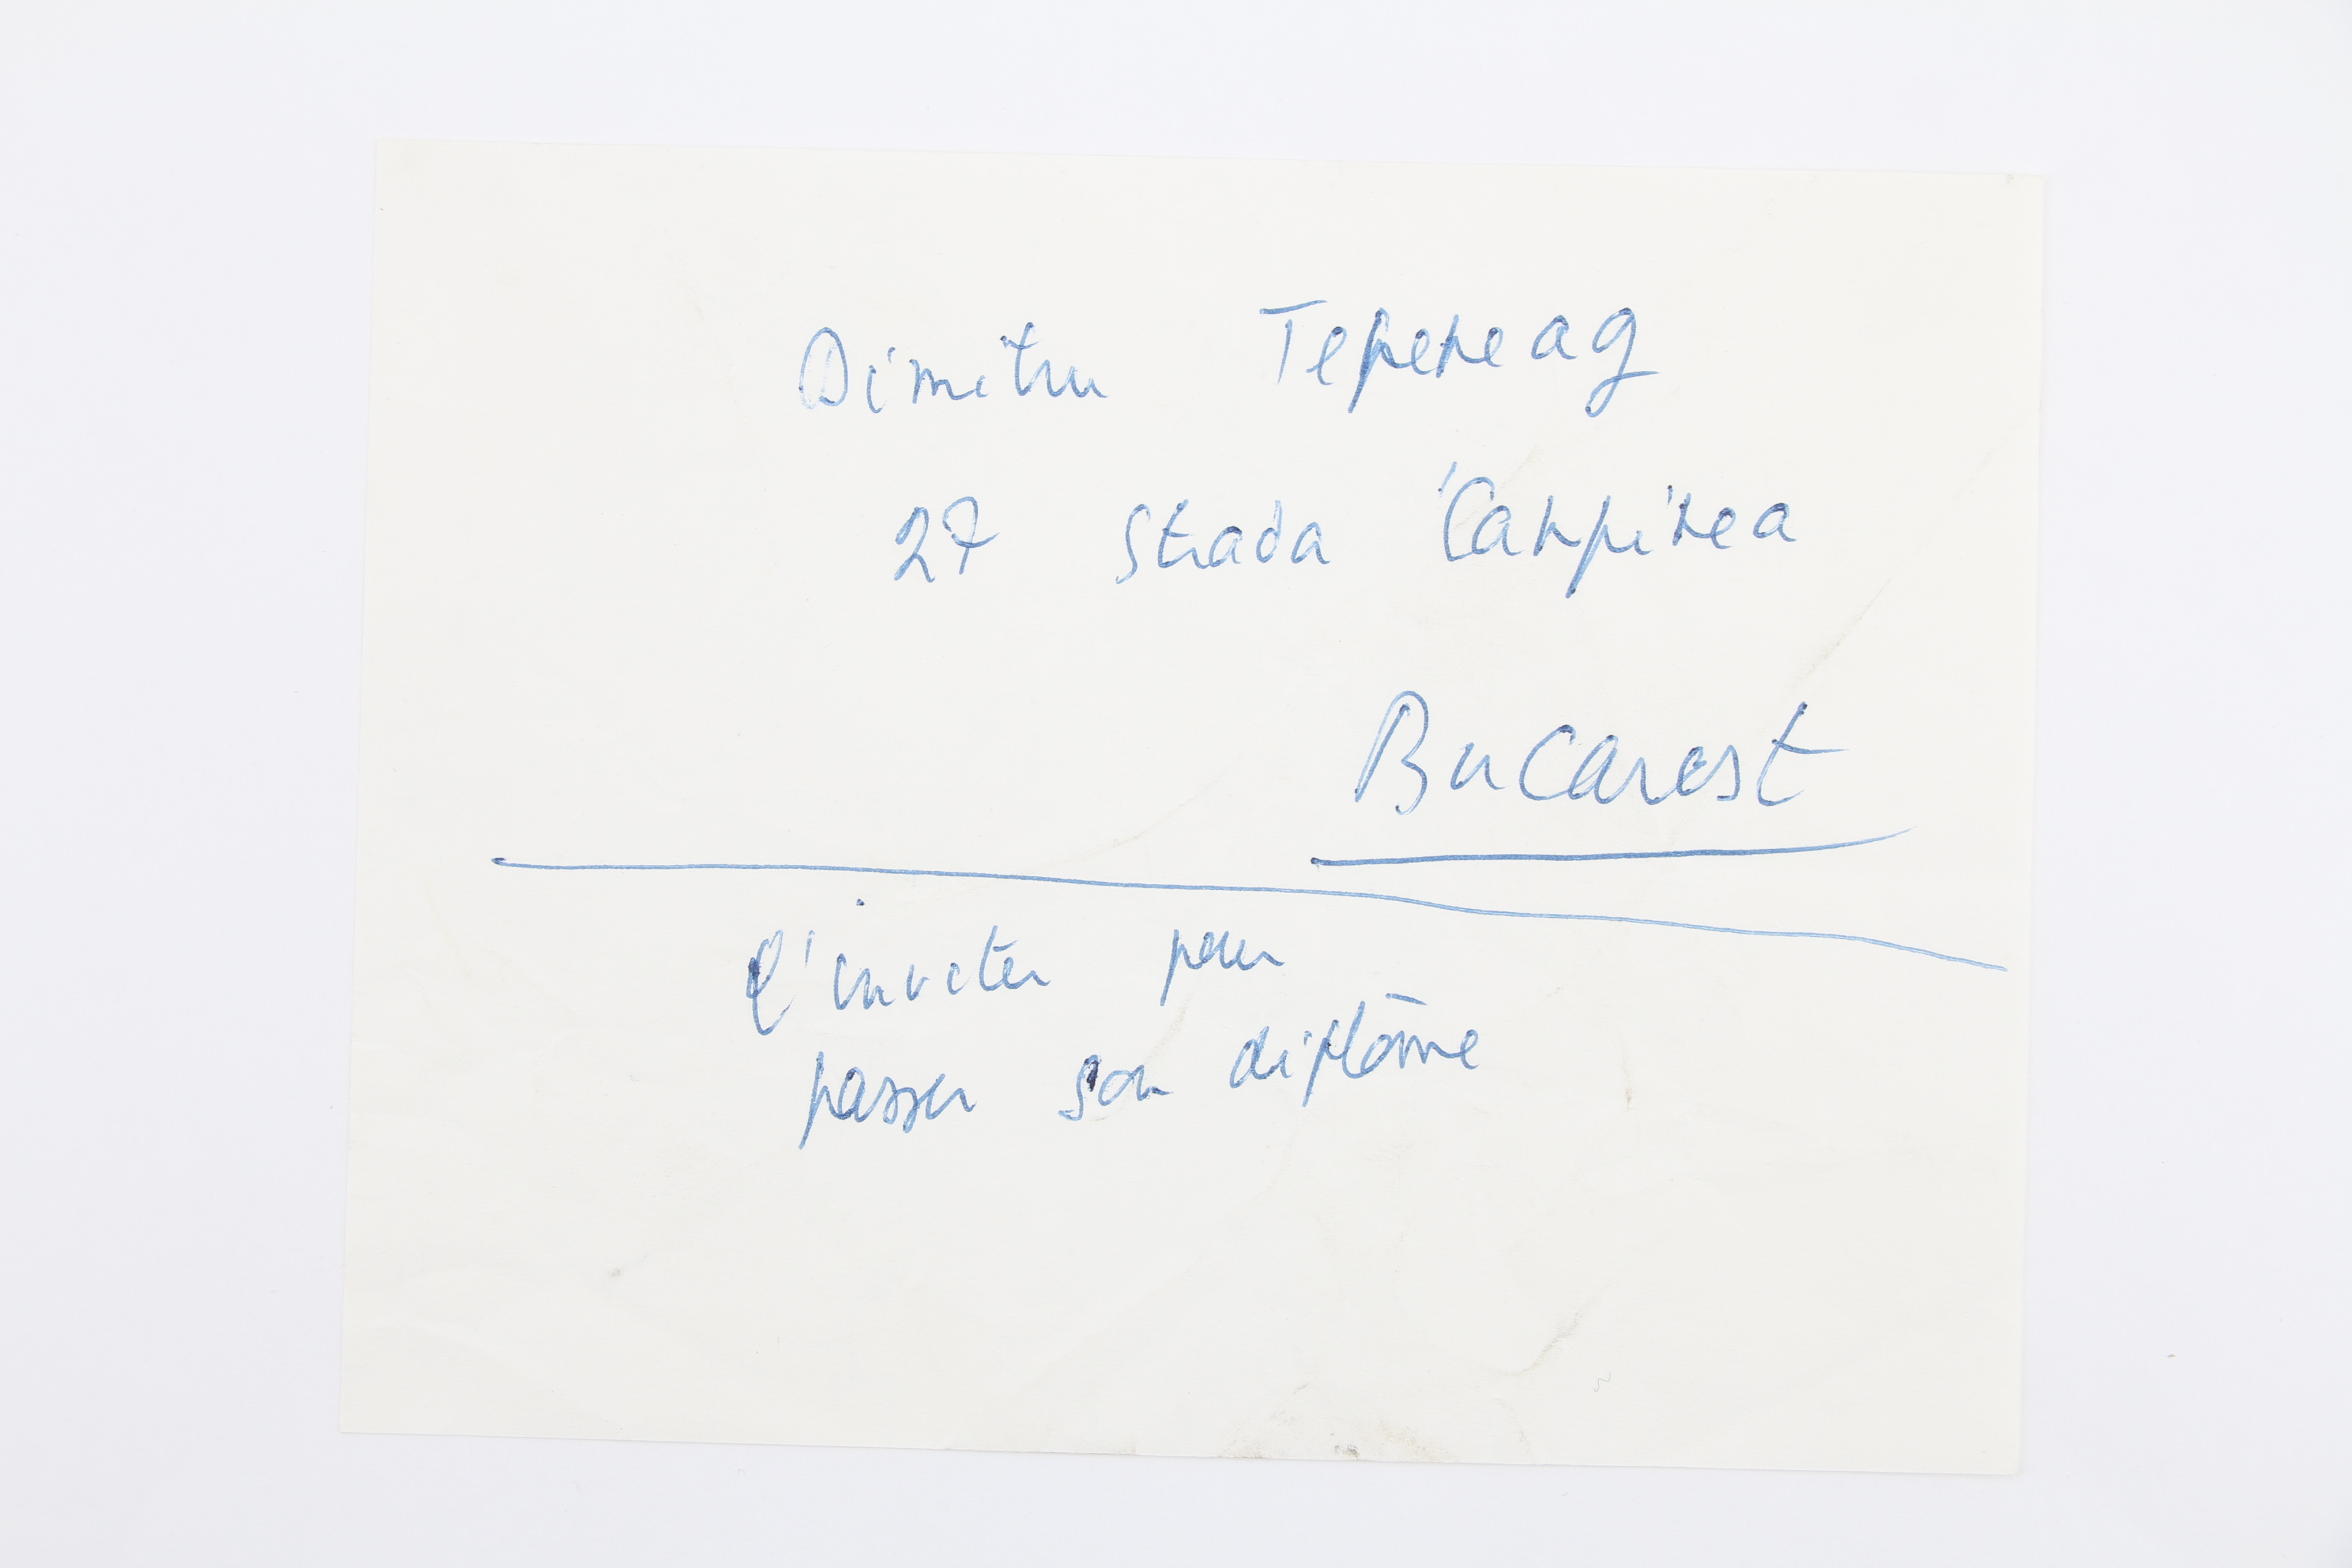 Dimitru Tepeneag
27 Strada Canpinea
Bucarest
l'inviter pour
passer son diplôme